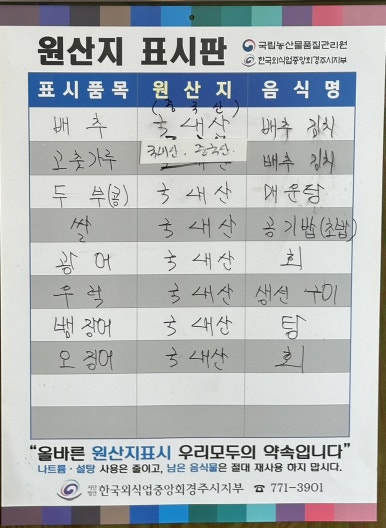 원산지 표시판
국립농산물품질관리원
한국외식업중앙회경주시지부
표시품목 원산지 음식명
(중국산)
배추 국내산 배추 김치
고춧가루 국내산. 중국산. 배추 김치
두부(콩) 국내산 매운탕
쌀 국내산 공기밥(초밥)
광어 국내산 회
우럭 국내산 생선 구이
뱀장어 국내산 탕
오징어 국내산 회
"올바른 원산지표시 우리모두의 약속입니다"
나트륨·설탕 사용은 줄이고, 남은 음식물은 절대 재사용 하지 맙시다.
사단법인 한국외식업중앙회경주시지부 ☎ 771-3901